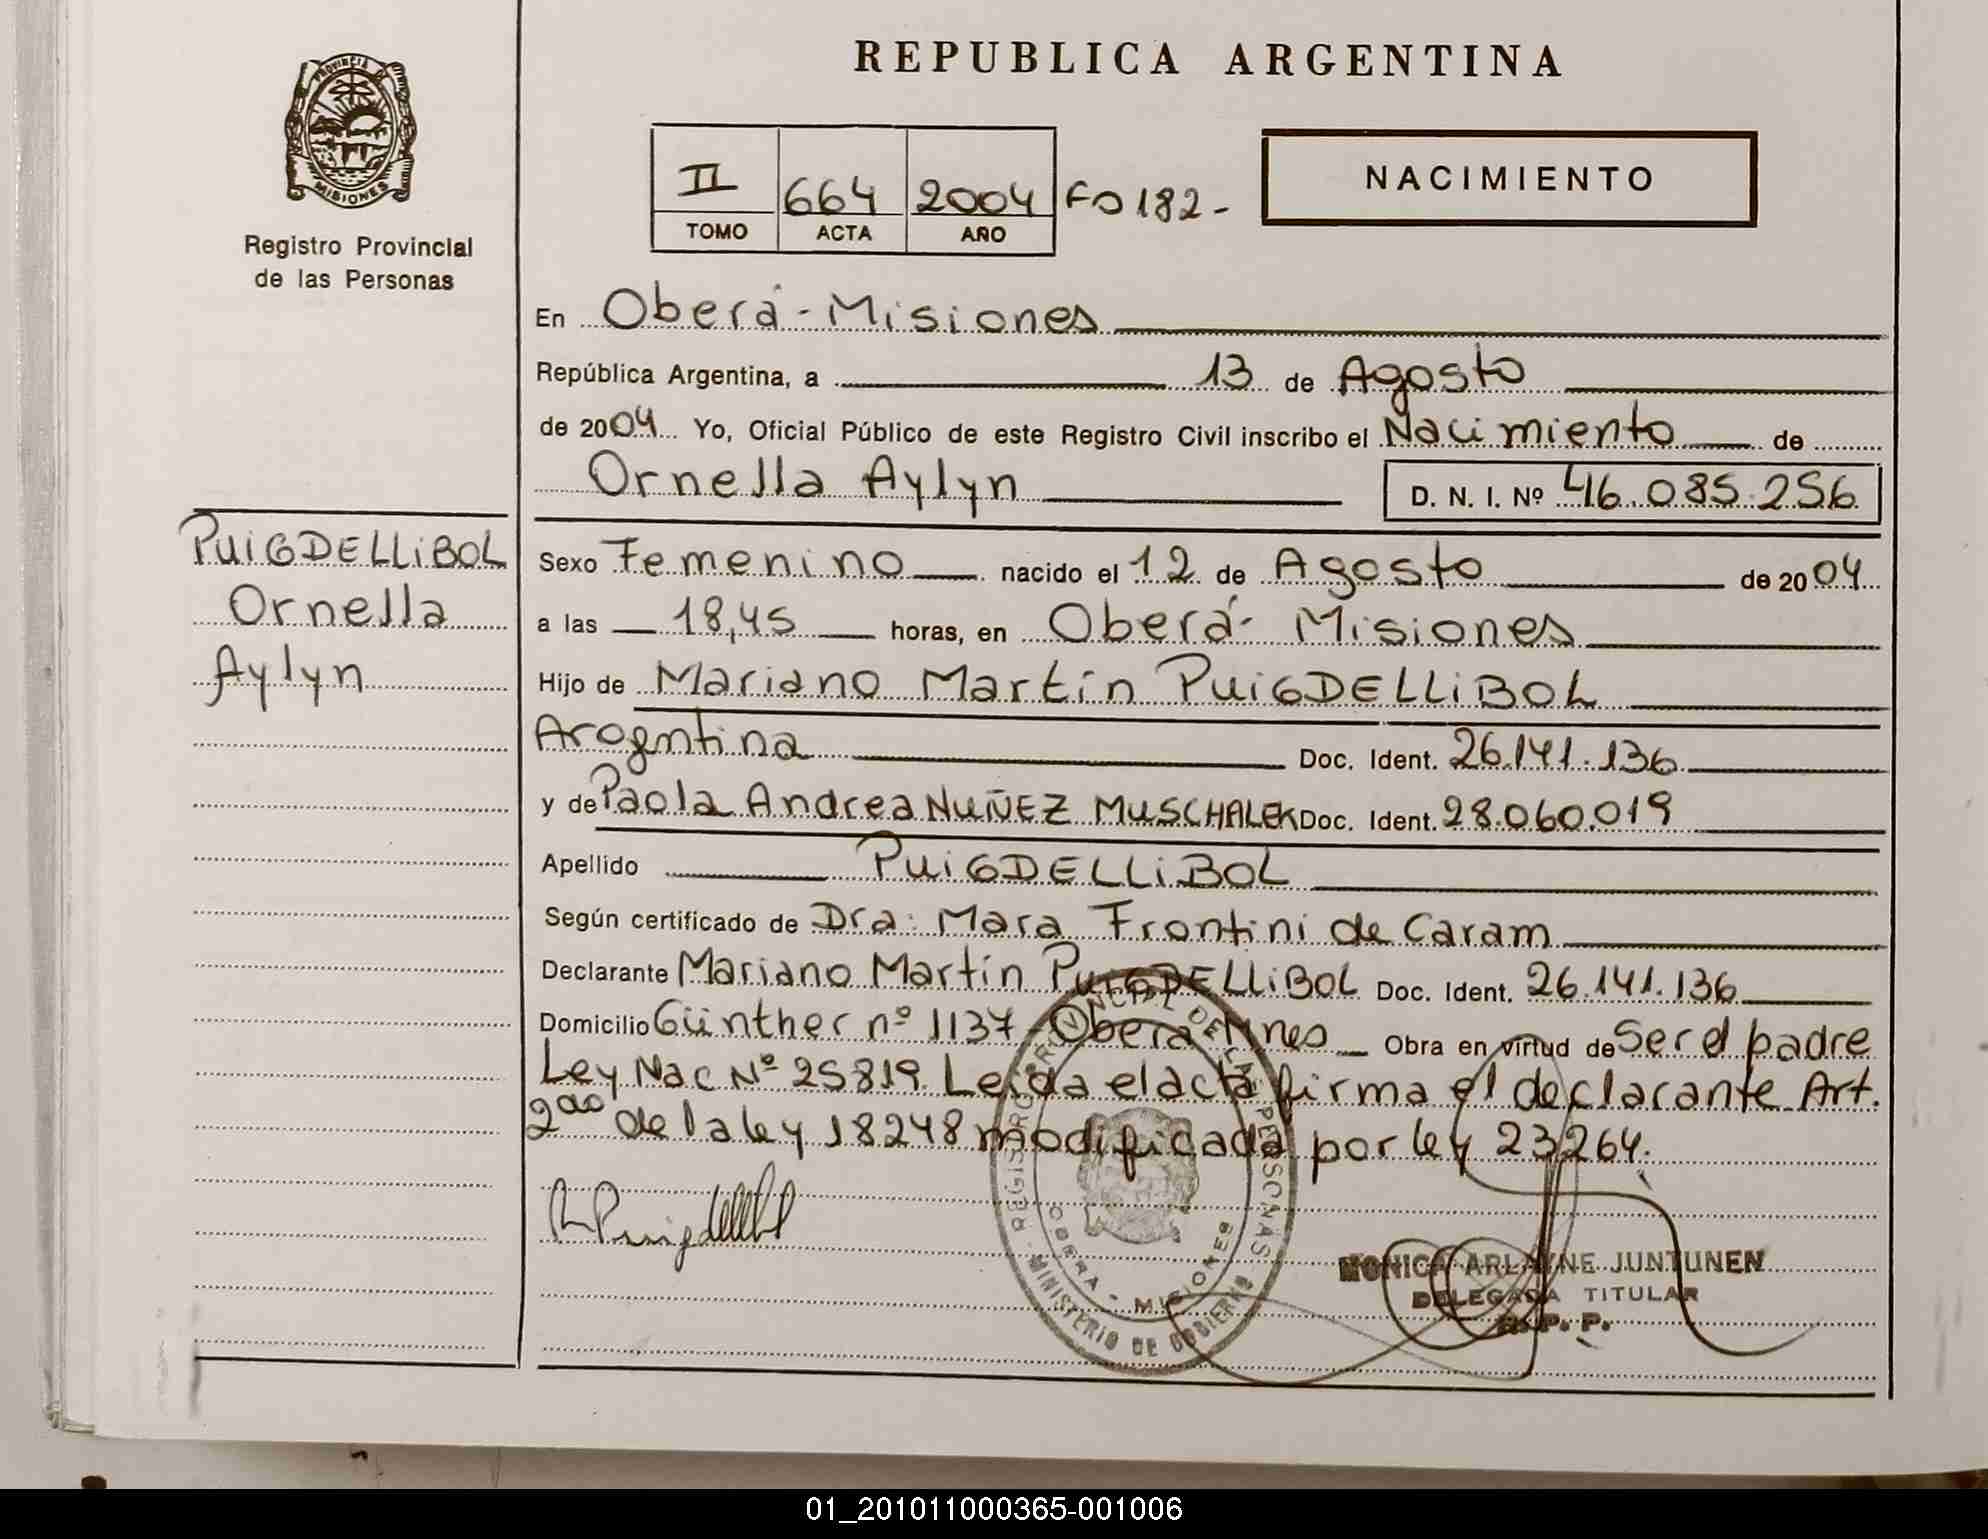 REPUBLICA ARGENTINA
PROVINCIA DE
MISIONES
Registro Provincial
de las Personas
II 664 2004 Fo 182-
TOMO ACTA AÑO
NACIMIENTO
En Oberá - Misiones
República Argentina, a 13 de Agosto
de 2004 Yo, Oficial Público de este Registro Civil inscribo el Nacimiento de
Ornella Aylyn D. N. I. Nº 46.085.256
PUiGDELLiBOL
Ornella
Aylyn
Sexo Femenino nacido el 12 de Agosto de 2004
a las 18,45 horas, en Oberá - Misiones
Hijo de Mariano Martín PUiGDELLiBOL
Arogntina Doc. Ident. 26.141.136
y de Paola Andrea NUÑEZ MUSCHALEK Doc. Ident. 28.060.019
Apellido PUiGDELLiBOL
Según certificado de Dra: Mara Frontini de Caram
Declarante Mariano Martín PUiGDELLiBOL Doc. Ident. 26.141.136
Domicilio Günther nº 1137 - Oberá Mnes Obra en virtud de Ser el padre
Ley Nac Nº 25819. Leida el acta firma el declarante Art.
2do de la ley 18248 modificada por ley 23264.
REGISTRO PROVINCIAL DE LAS PERSONAS
OBERA - MISIONES
MINISTERIO DE GOBIERNO
MONICA ARLAYNE JUNTUNEN
DELEGADA TITULAR
R. P. P.
01_201011000365-001006